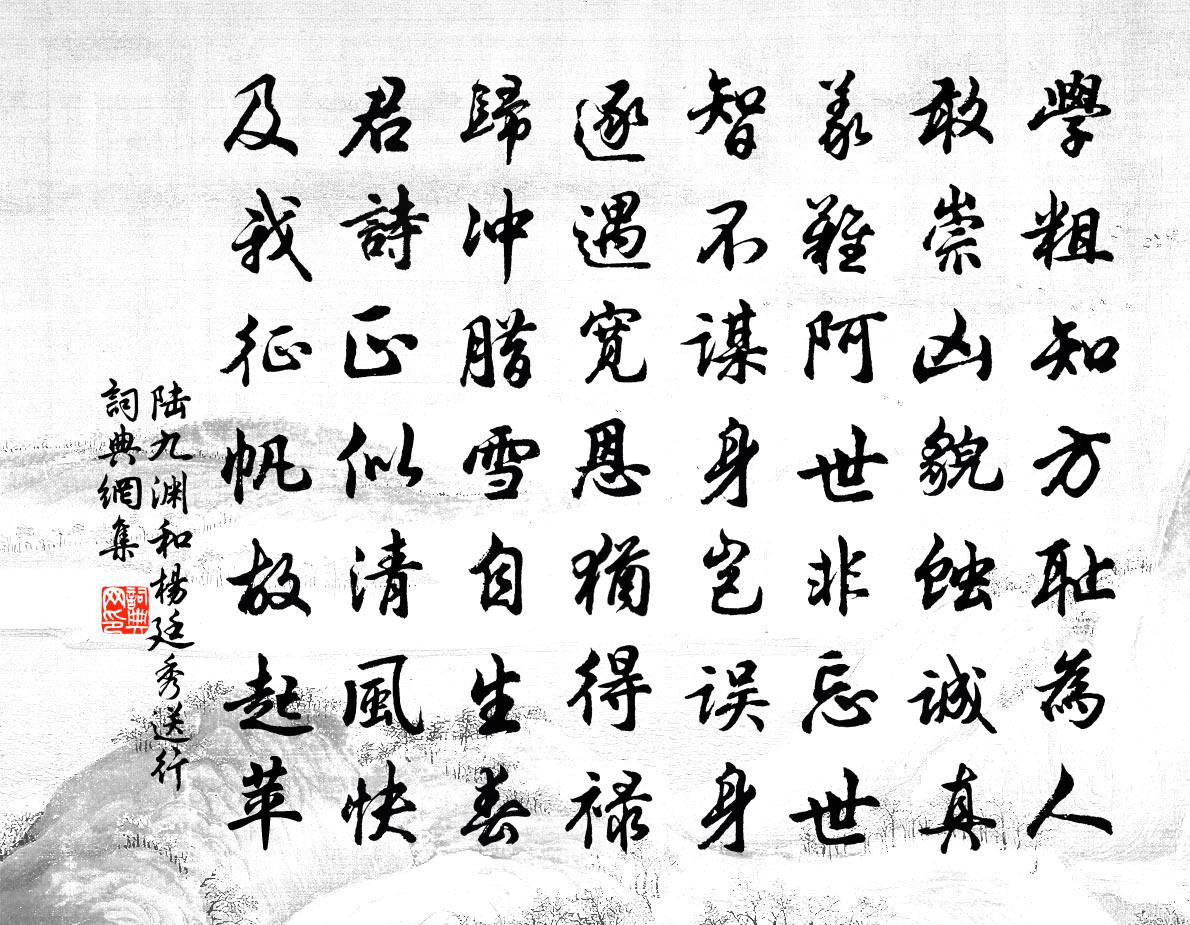 學粗知方耻為人
敢崇凶貌蝕誠真
義難阿世非忘世
智不謀身岂误身
逐遇寬恩猶得禄
歸冲腊雪自生春
君詩正似清風快
及我征帆故起苹
陆九渊和楊廷秀送行
詞典網集
詞典网印